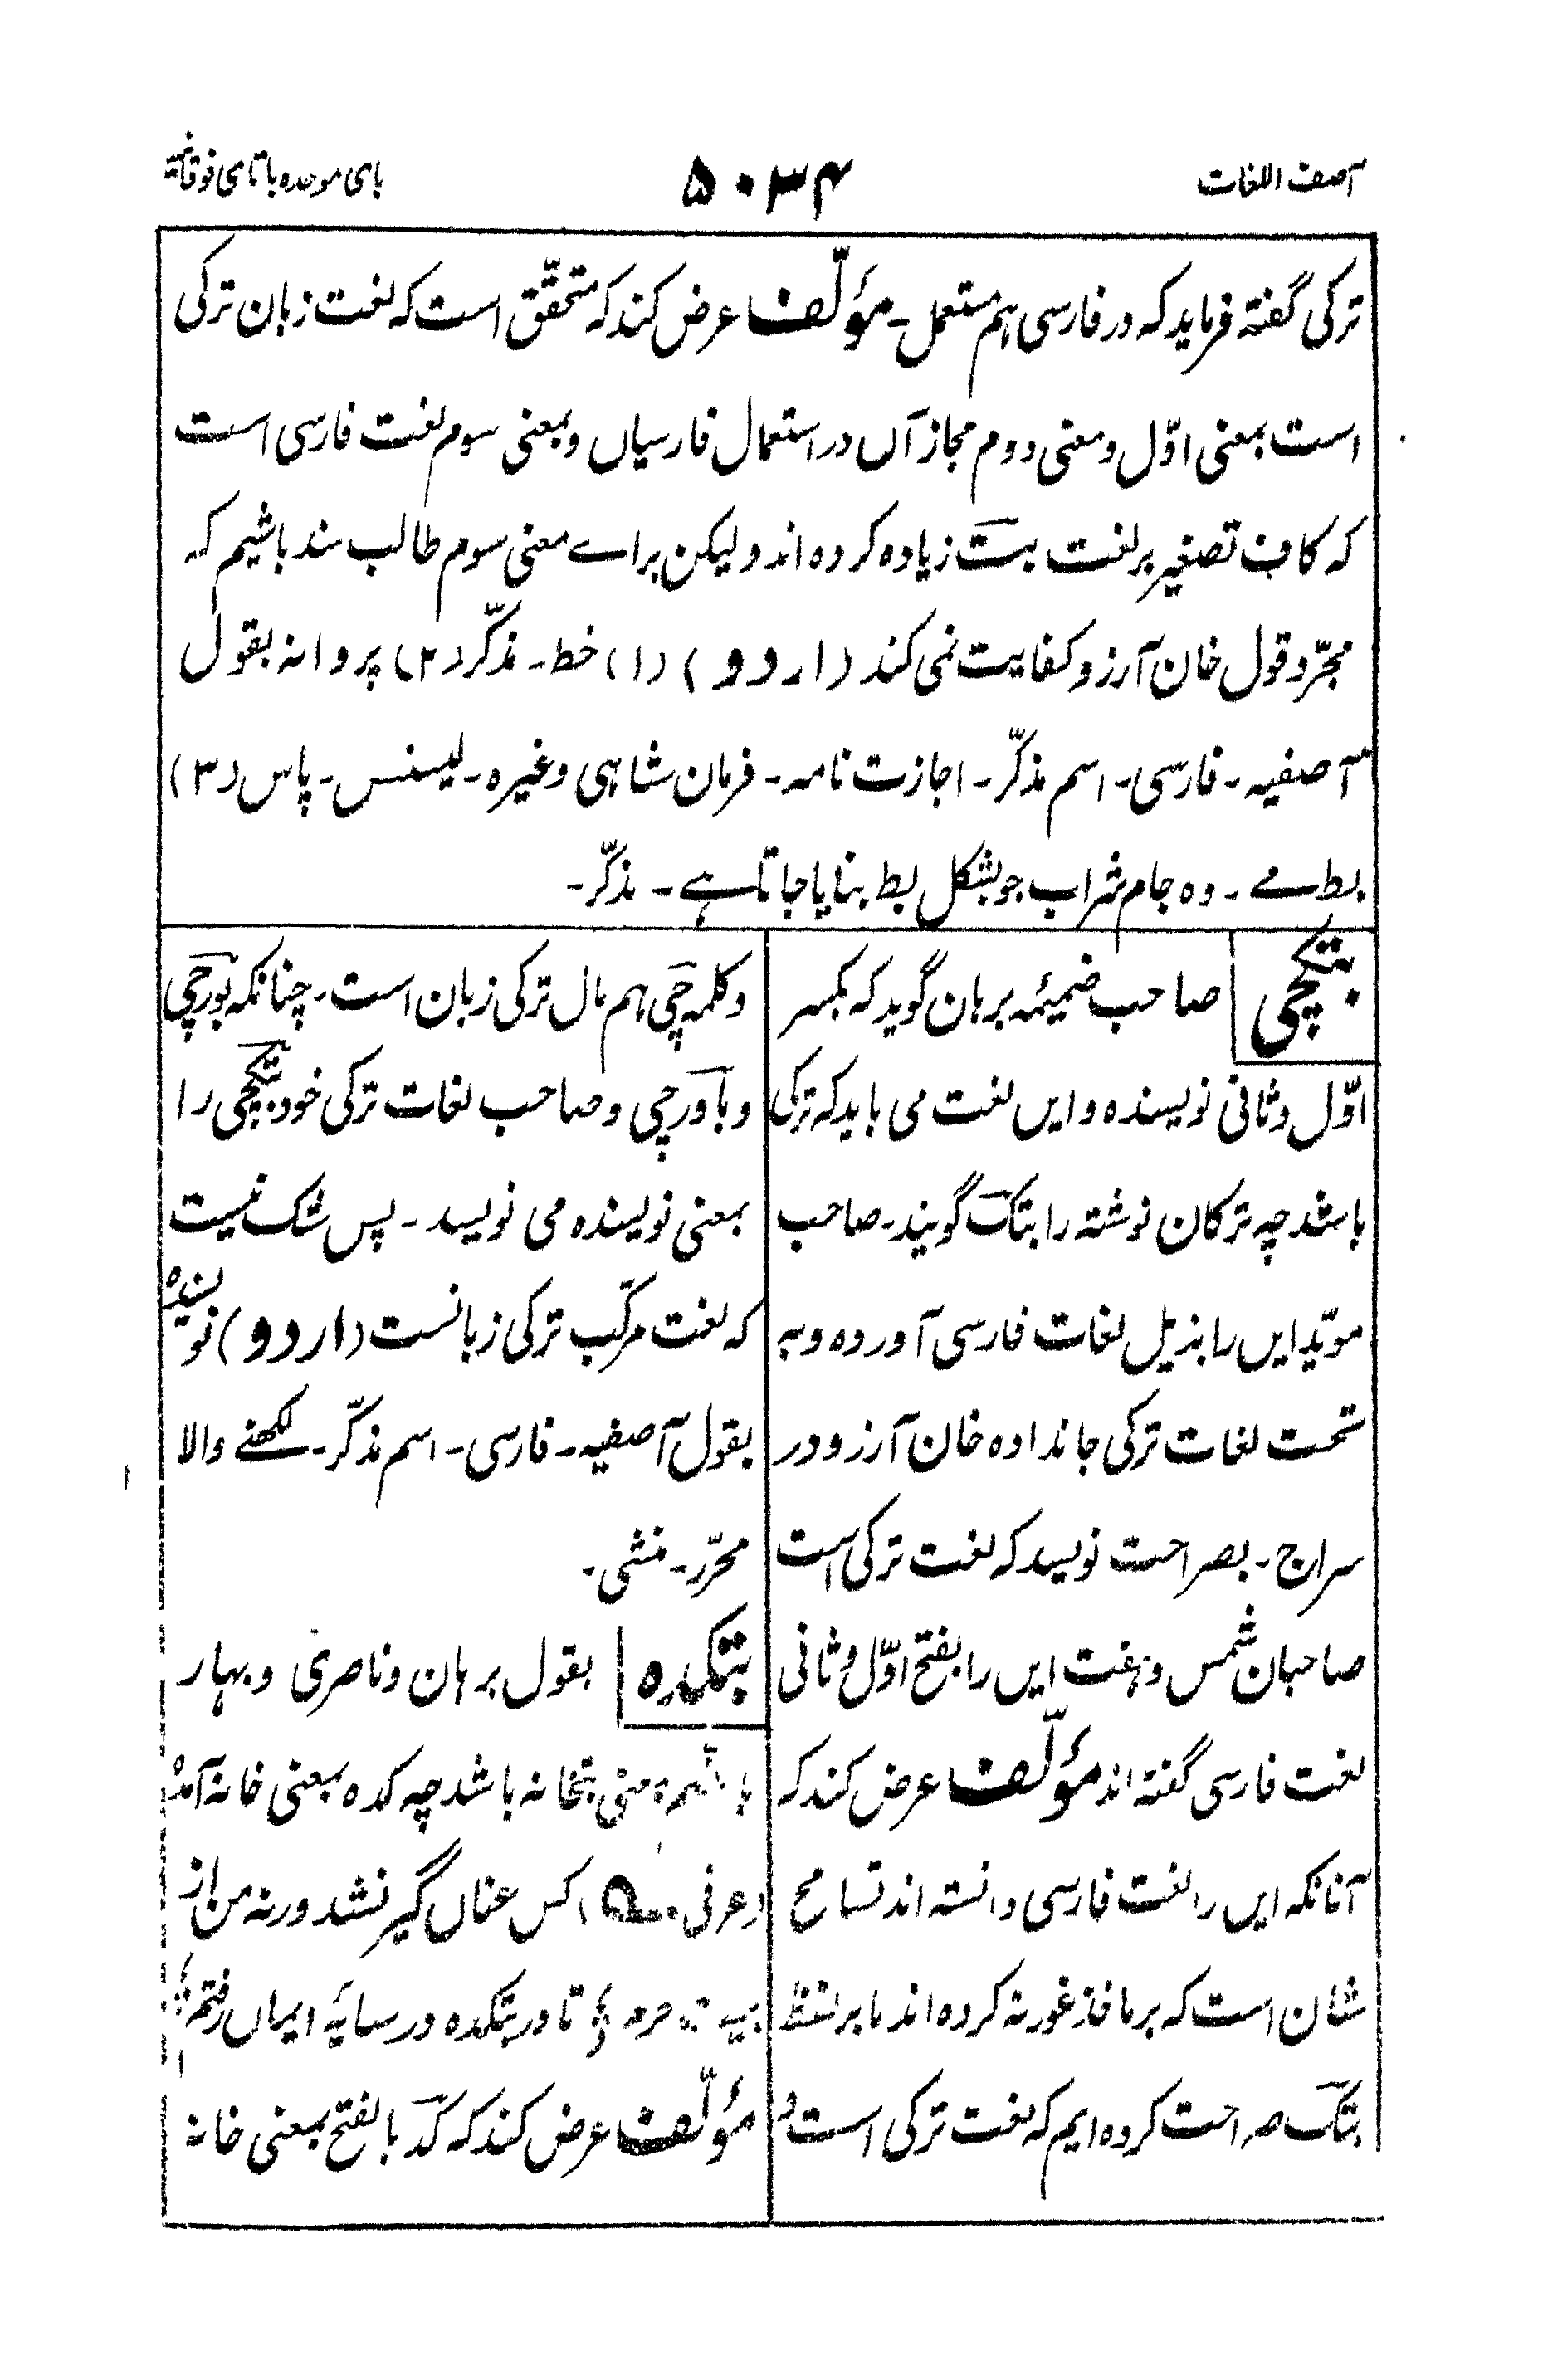 آصف اللغات
۵۰۳۴
بای موحده با تای فوقانیه
ترکی گفته فرماید که در فارسی ہم مستعمل۔ مؤلّف عرض کند که متحقّق است که لغت زبان ترکی
است بمعنی اوّل و معنی دوم مجاز آں در استعمال فارسیاں و بمعنی سوم لغت فارسی است
که کاف تصغیر بر لغت بت زیاده کرده اند ولیکن براے معنی سوم طالب سند باشیم که
مجرّد قول خان آرزو کفایت نمی کند (اردو) (۱) خط۔ مذکّر (۲) پروانہ بقول
آصفیہ۔ فارسی۔ اسم مذکّر۔ اجازت نامہ۔ فرمان شاہی وغیرہ۔ لیسنس۔ پاس (۳)
بط مے۔ وہ جام شراب جو بشکل بط بنایا جاتا ہے۔ مذکّر۔
بتکچی
صاحب ضمیمۂ برہان گوید که بکسر
اوّل و ثانی نویسنده و ایں لغت می باید که ترکی
باشد چه ترکان نوشته را بتک گویند۔ صاحب
مویّد ایں را بذیل لغات فارسی آورده و به
تحت لغات ترکی جا نداده خان آرزو در
سراج۔ بصراحت نویسد که لغت ترکی است
صاحبان شمس و ہفت ایں را بفتح اوّل و ثانی
لغت فارسی گفته اند مؤلّف عرض کند که
آنانکه ایں را لغت فارسی دانسته اند تسامح
شان است که بر ماخذ غور نه کرده اند ما بر لفظ
بتک صراحت کرده ایم که لغت ترکی است و
و کلمه چی ہم مال ترکی زبان است۔ چنانکه بورچی
و باورچی و صاحب لغات ترکی خود بتکچی را
بمعنی نویسنده می نویسد۔ پس شک نیست
که لغت مرکّب ترکی زبانست (اردو) نویسنده
بقول آصفیہ۔ فارسی۔ اسم مذکّر۔ لکھنے والا
محرّر۔ منشی۔
بتکده
بقول برہان و ناصری و بہار
معنی بتخانه باشد چه کده بمعنی خانه آمده
(عرفی کس عناں گیر نشد ورنه من از
حرم تا در بتکده در سایۂ ایماں رفتم
مؤلّف عرض کند که کد بالفتح بمعنی خانه